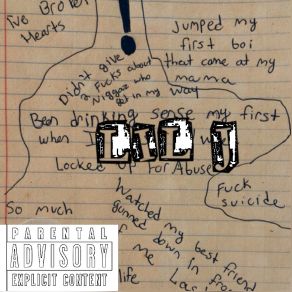 I've Broken
Hearts
Jumped my
first boi
that came at my
mama
Didn't give
2 Fucks about
Niggaz who
get in my way
Been drinking sense my first
when I
LIL J
Locked up for Abuse
Fuck
suicide
So much
Watched my best friend
gunned down in
me
life
PARENTAL
ADVISORY
EXPLICIT CONTENT